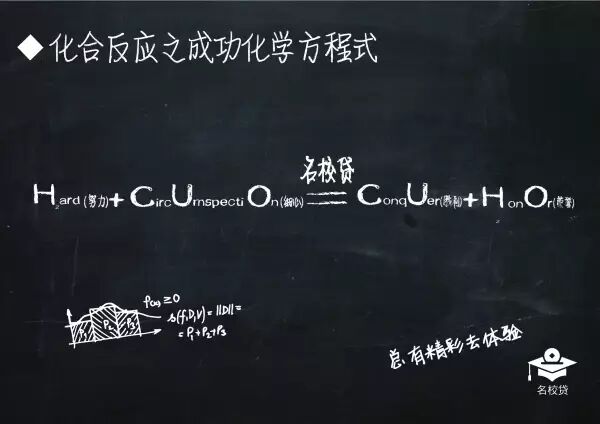 ◆化合反应之成功化学方程式
名校贷
Hard(努力)+CircUmspectiOn(细心)=ConqUer(胜利)+HonOr(荣誉)
f(x)≥0
s(f,D,V)=||D||=
=P₁+P₂+P₃
P₁ P₂ P₃
总有精彩去体验
名校贷